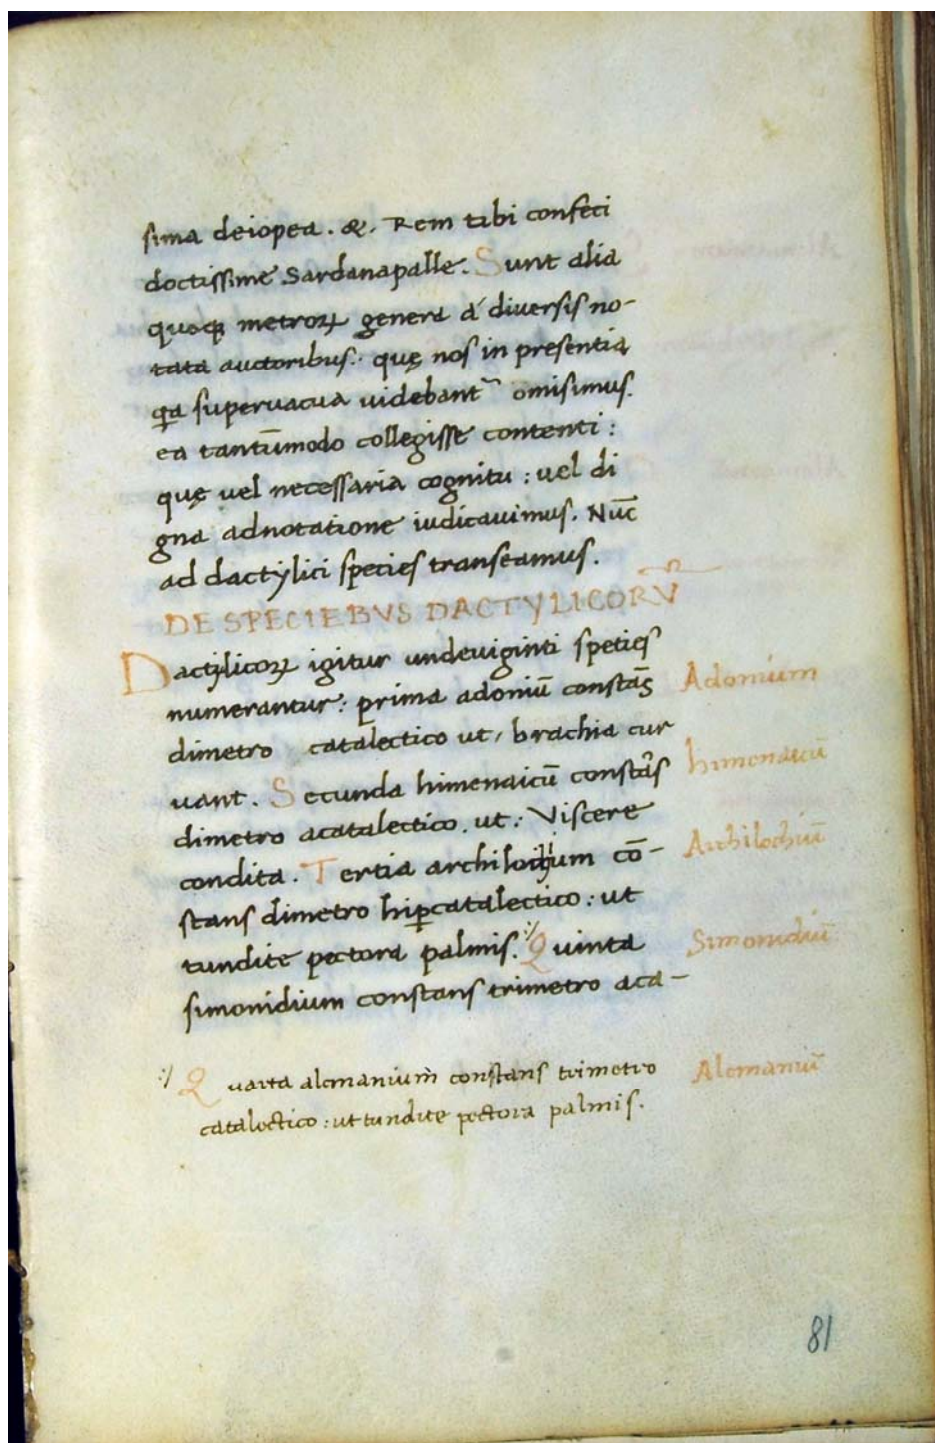 sima deiopea . &. Rem tibi confeci
doctissime Sardanapalle. Sunt alia
quoq; metroꝝ genera á diversis no-
tata auctoribus: quę nos in presentia
qa supervacua videbant᷑ omisimus.
ea tantūmodo collegisse contenti:
quę vel necessaria cognitu: vel di
gna adnotatione iudicavimus. Nūc
ad dactylici species transeamus.
DE SPECIEBVS DACTYLICORṼ
Dactylicoꝝ igitur undeviginti spetięs
numerantur: prima adoniū constās
dimetro catalectico ut, brachia cur
vant. Secunda himenaicū constās
dimetro acatalectico. ut: Viscere
condita. Tertia archilochium cō-
stans dimetro hiꝑcatalectico: ut
tundite pectora palmis. :/ Quinta
simonidium constans trimetro aca-
:/ Quarta alcmanium constans trimetro
catalectico: ut tundite pectora palmis.
Adonium
himenaicū
Archilochiū
Simonidiū
Alcmaniū
81